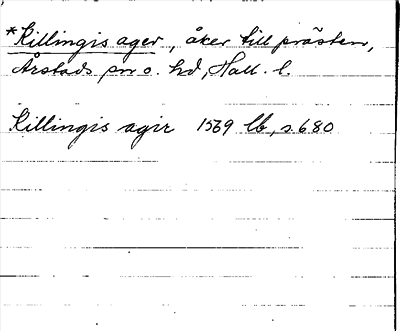 *Killingis ager, åker till prästen,
Årstads sn o. hd, Hall. l.
Killingis agir 1569 lb, s. 680